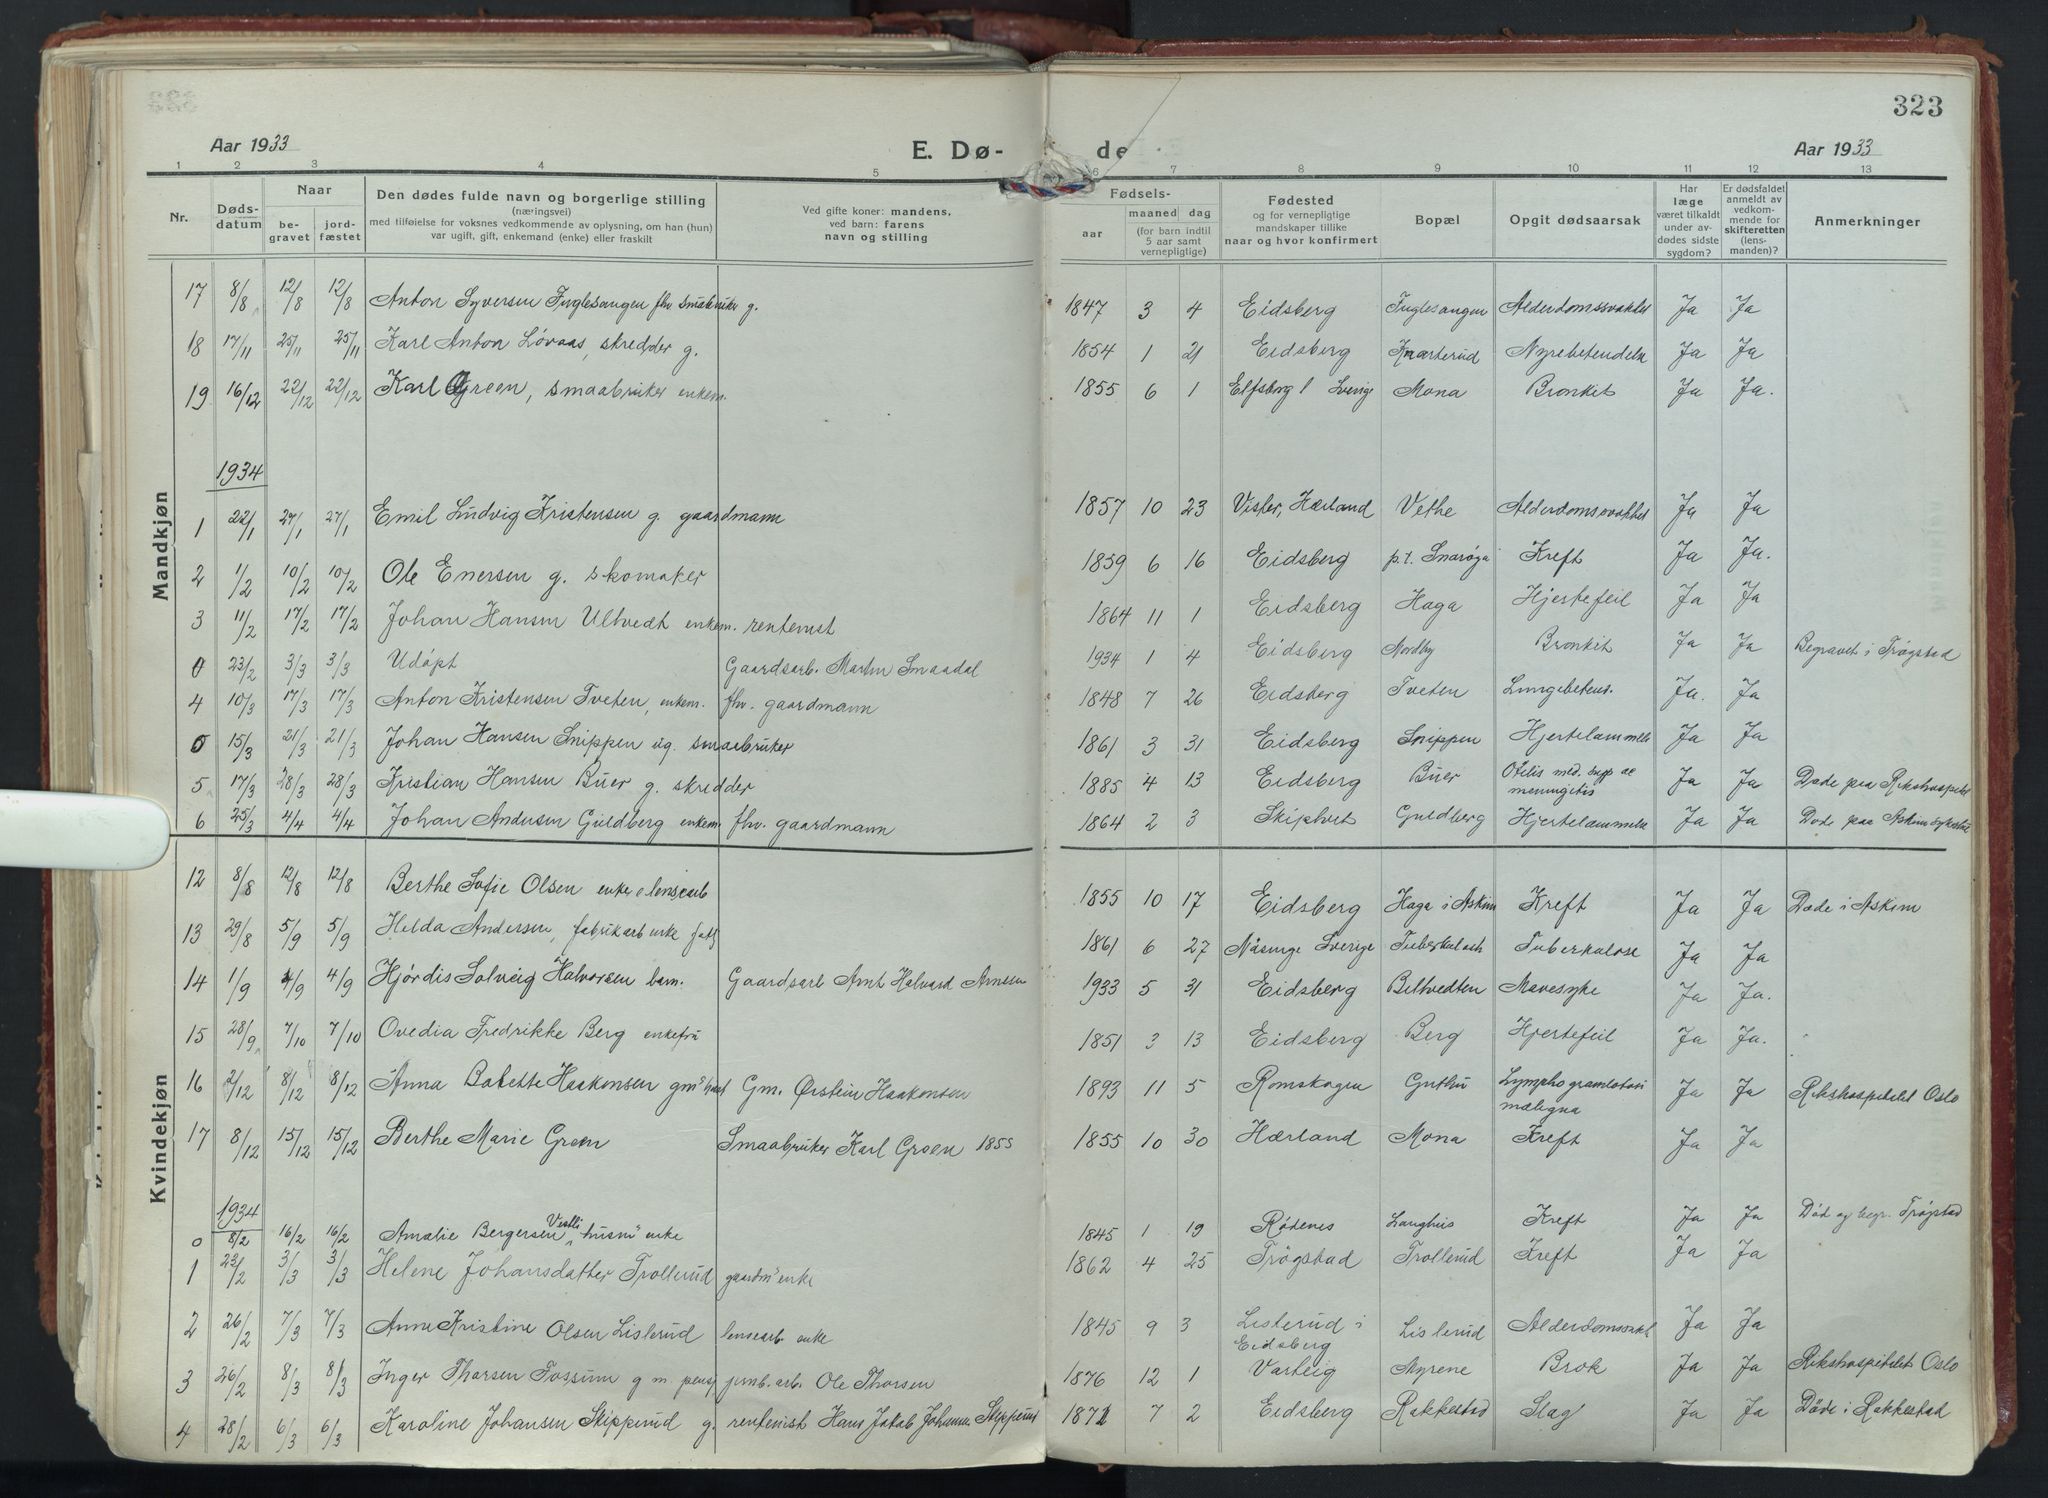 323
Aar 1933 E. Dø- de. Aar 1933
1 2 3 4 5 6 7 8 9 10 11 12 13
Nr.
Døds-
datum
Naar
be-
gravet
jord-
fæstet
Den dødes fulde navn og borgerlige stilling
(næringsvei)
med tilføielse for voksnes vedkommende av oplysning, om han (hun)
var ugift, gift, enkemand (enke) eller fraskilt
Ved gifte koner: mandens,
ved barn: farens
navn og stilling
Fødsels-
aar
maaned dag
(for barn indtil
5 aar samt
vernepligtige)
Fødested
og for vernepligtige
mandskaper tillike
naar og hvor konfirmert
Bopæl
Opgit dødsaarsak
Har
læge
været tilkaldt
under av-
dødes sidste
sygdom?
Er dødsfaldet
anmeldt av
vedkom-
mende for
skifteretten
(lens-
manden)?
Anmerkninger
Mandkjøn
17 8/8 12/8 12/8 Anton Syversen Fuglesangen fhv smabruker g. 1847 3 4 Eidsberg Fuglesangen Alderdomssvakhet Ja Ja
18 17/11 25/11 25/11 Karl Anton Løvaas, skredder g. 1854 1 21 Eidsberg Knarterud Nyrebetendelse Ja Ja
19 16/12 22/12 22/12 Karl Green, smaabruker enkem. 1855 6 1 Elfsborg l Sverige Mona Bronkit Ja Ja.
1934
1 22/1 27/1 27/1 Emil Ludvig Kristensen g. gaardmann 1857 10 23 Vister, Hærland Vethe Alderdomssvakhet Ja Ja
2 1/2 10/2 10/2 Ole Enersen g. skomaker 1859 6 16 Eidsberg p.t. Snarøya Kreft Ja Ja.
3 11/2 17/2 17/2 Johan Hansen Ultvedt enkem. rentenist 1864 11 1 Eidsberg Haga Hjertefeil Ja Ja
0 23/2 3/3 3/3 Udøpt Gaardsarb. Martin Smaadal 1934 1 4 Eidsberg Nordby Bronkit Ja Ja Begravet i Trøgstad
4 10/3 17/3 17/3 Anton Kristensen Tveten, enkem. fhv. gaardmann 1848 7 26 Eidsberg Tveten Lungebetens. Ja. Ja
0 15/3 21/3 21/3 Johan Hansen Snippen ug. smaabruker 1861 3 31 Eidsberg Snippen Hjertelammelse Ja Ja
5 17/3 28/3 28/3 Kristian Hansen Buer g. skredder 1885 4 13 Eidsberg Buer Otitis med. supp ac Ja Ja Døde paa Rikshospitalet
meningitis
6 25/3 4/4 4/4 Johan Andersen Guldberg enkem fhv. gaardmann 1864 2 3 Skiptvet Guldberg Hjertelammelse Ja Ja Døde paa Askim sykehus
Kvindekjøn
12 8/8 12/8 12/8 Berthe Sofie Olsen enke e lensearb 1855 10 17 Eidsberg Haga i Askim Kreft Ja Ja Døde i Askim
13 29/8 5/9 5/9 Helda Andersen, fabrikarb enke 1861 6 27 Nåsinge Sverige Tuberkulosh Tuberkulose Ja Ja
14 1/9 4/9 4/9 Hjørdis Solveig Halvorsen barn. Gaardsarb Arnt Halvard Arnesen 1933 5 31 Eidsberg Biltvedten Mavesyke Ja Ja.
15 28/9 7/10 7/10 Ovedia Fredrikke Berg enkefru 1851 3 13 Eidsberg Berg Hjertefeil Ja Ja.
16 2/12 8/12 8/12 Anna Babette Haakensen gms hust Gm. Øistein Haakensen 1893 11 5 Romskogen Guthu Lymphogramlotosi Ja Ja Rikshospitalet Oslo
malegna
17 8/12 15/12 15/12 Berthe Marie Green Smaabruker Karl Green 1855 1855 10 30 Hærland Mona Kreft Ja Ja
1934
0 8/2 16/2 16/2 Amalie Bergersen Vestli husm" enke 1845 1 19 Rødenes Langhus Kreft Ja Ja Død og begr. Trøgstad
1 23/2 3/3 3/3 Helene Johansdatter Trollerud gaardm" enke 1862 4 25 Trøgstad Trollerud Kreft Ja Ja
2 26/2 7/3 7/3 Anne Kristine Olsen Lislerud lensearb enke 1845 9 3 Lislerud i Lislerud Alderdomssvakt Ja Ja
Eidsberg
3 26/2 8/3 8/3 Inger Thorsen Fossum g m pens jernb. arb. Ole Thorsen 1876 12 1 Varteig Myrene Brok Ja Ja Rikshospitalet Oslo
4 28/2 6/3 6/3 Karoline Johansen Skipperud g. rentenist Hans Jakob Johansen Skipperud 1871 7 2 Eidsberg Rakkestad Slag Ja Ja Døde i Rakkestad